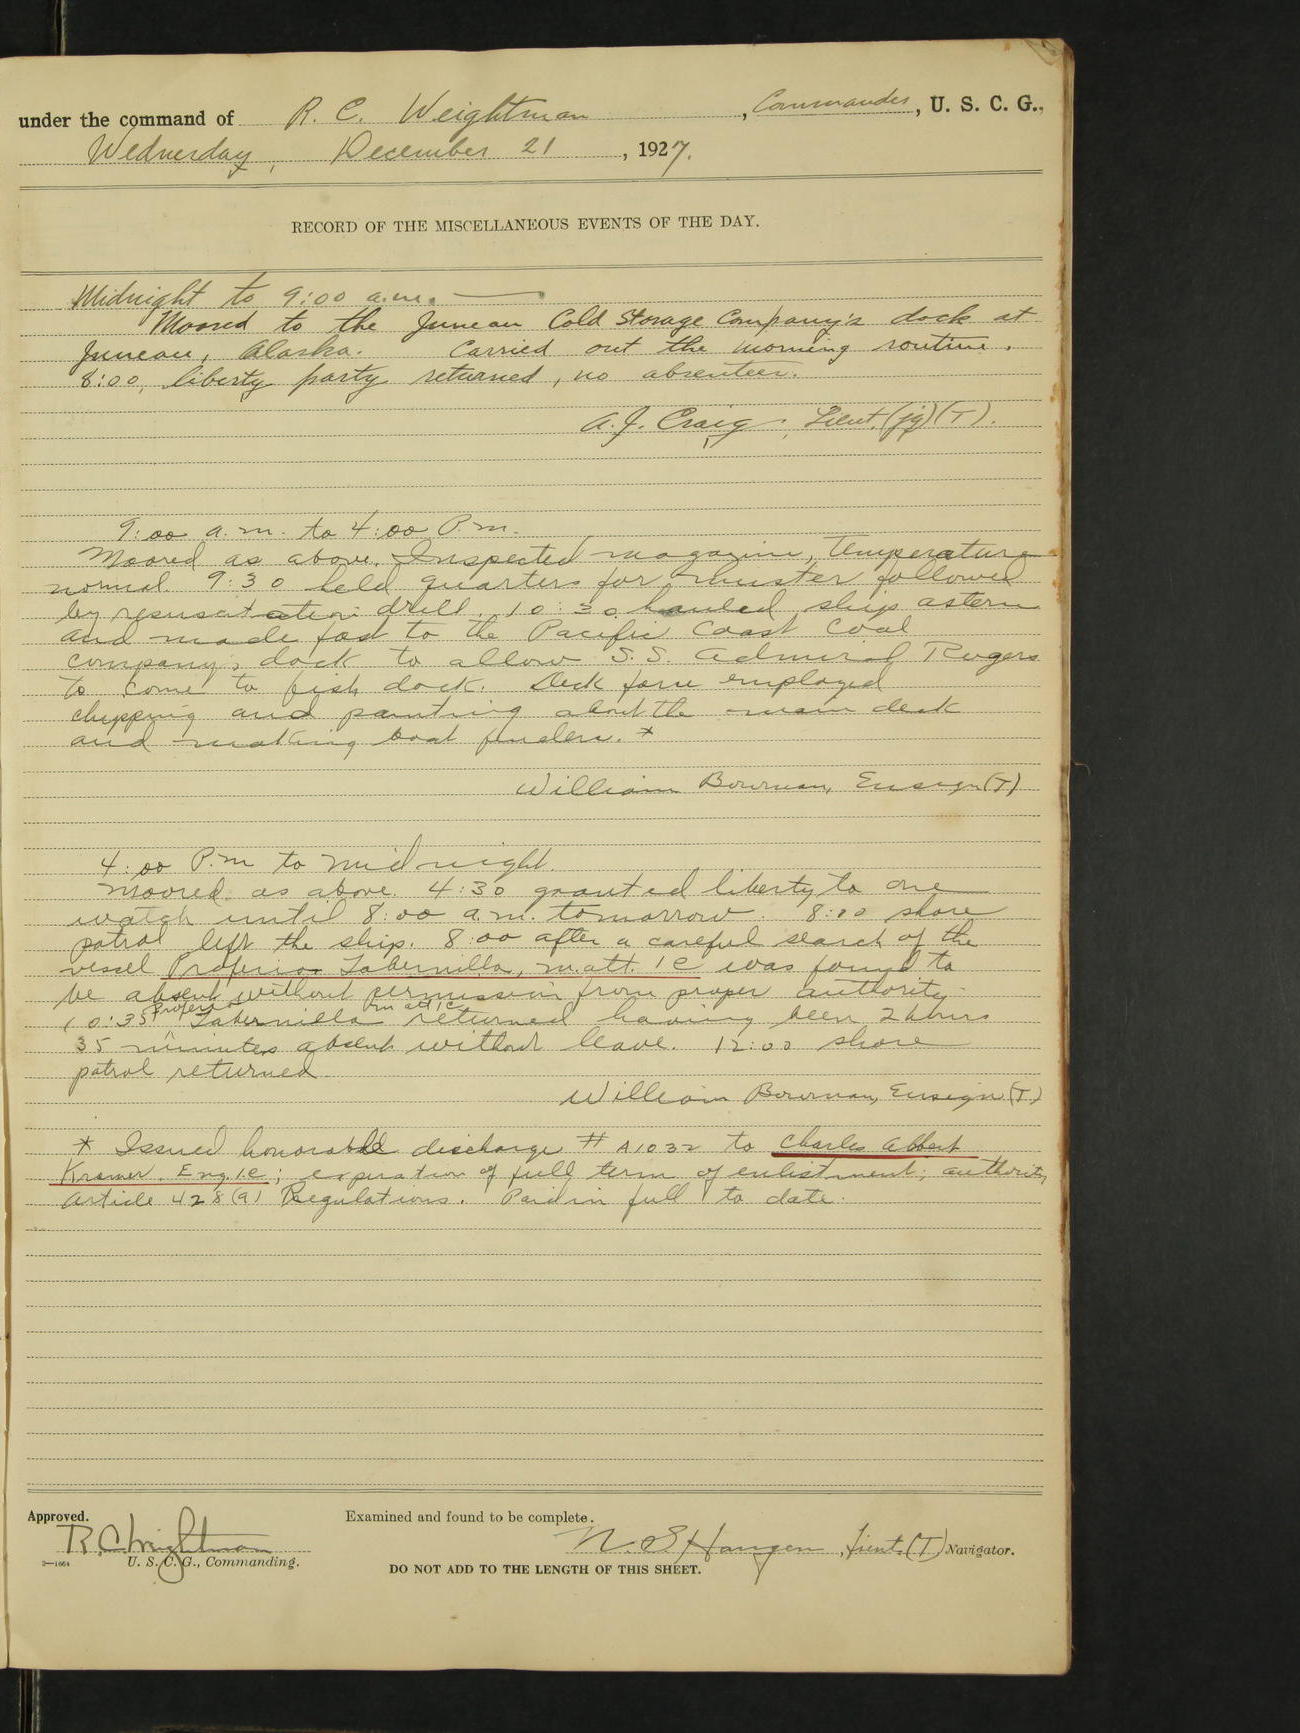 under the command of R. C. Weightman, Commander, U. S. C. G.,
Wednesday, December 21, 1927.
RECORD OF THE MISCELLANEOUS EVENTS OF THE DAY.
Midnight to 9:00 a.m.
Moored to the Juneau Cold Storage Company's dock at
Juneau, Alaska. Carried out the morning routine.
8:00, liberty party returned, no absentees.
A. J. Craig, Lieut. (jg) (T).
9:00 a.m. to 4:00 P.m.
Moored as above. Inspected magazine, temperature
normal. 9:30 held quarters for muster followed
by resuscitation drill. 10:30 hauled ship astern
and made fast to the Pacific Coast Coal
Company's dock to allow S.S. Admiral Rogers
to come to fish dock. Deck force employed
chipping and painting about the main deck
and making boat fenders. *
William Bowman, Ensign (T)
4:00 P.m to midnight.
Moored as above. 4:30 granted liberty to one
watch until 8:00 a.m. tomorrow. 8:00 shore
patrol left the ship. 8:00 after a careful search of the
vessel Proferios Tabernilla, m.att. 1c was found to
be absent without permission from proper authority.
10:35 Proferios Tabernilla m att 1c returned having been 2 hours
35 minutes absent without leave. 12:00 shore
patrol returned
William Bowman, Ensign (T)
* Issued honorable discharge # A1032 to Charles Albert
Kramer. Eng. 1.c; expiration of full term of enlistment; authority
Article 428(a) Regulations. Paid in full to date.
Approved.
Examined and found to be complete.
R. C. Weightman
N. S. Haugen, Lieut. (T) Navigator.
2—1664
U. S. C. G., Commanding.
DO NOT ADD TO THE LENGTH OF THIS SHEET.